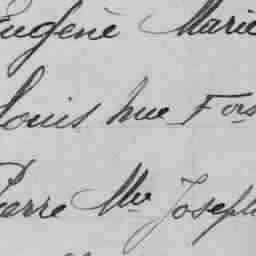 Eugène Marie
Louis hue Fois
Pierre Mie Joseph